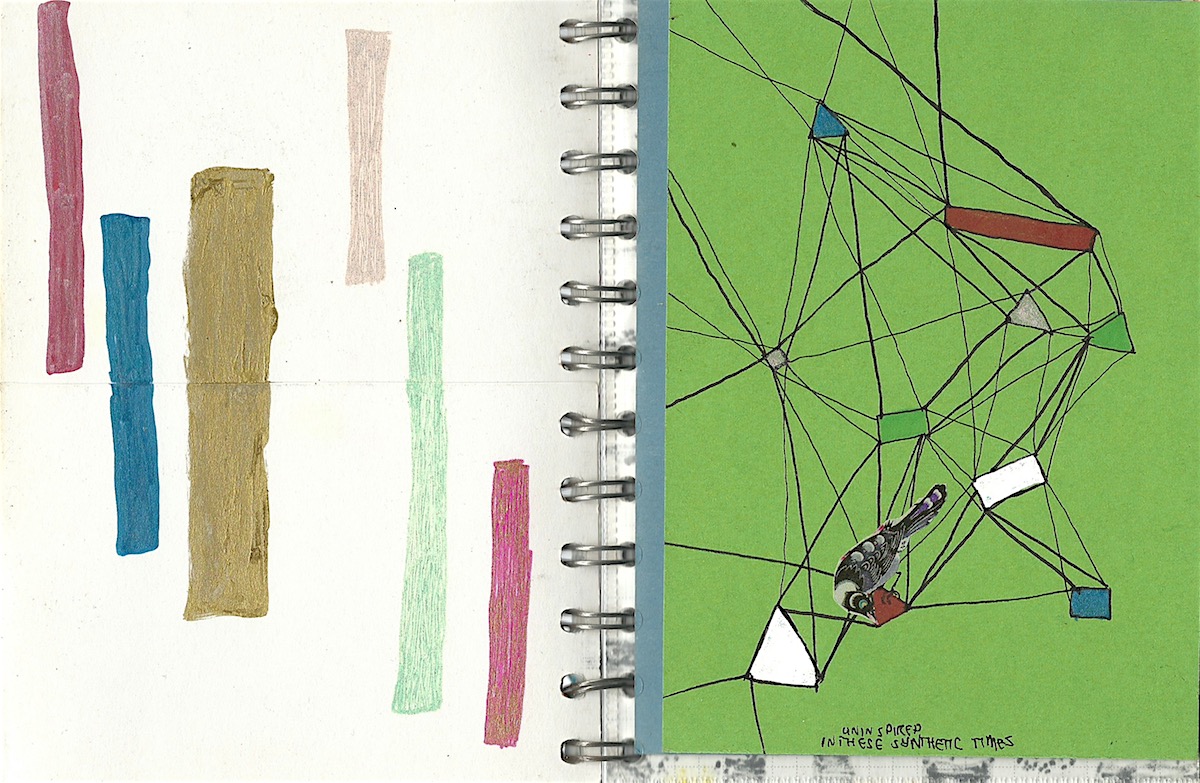 UNINSPIRED
IN THESE SYNTHETIC TIMES